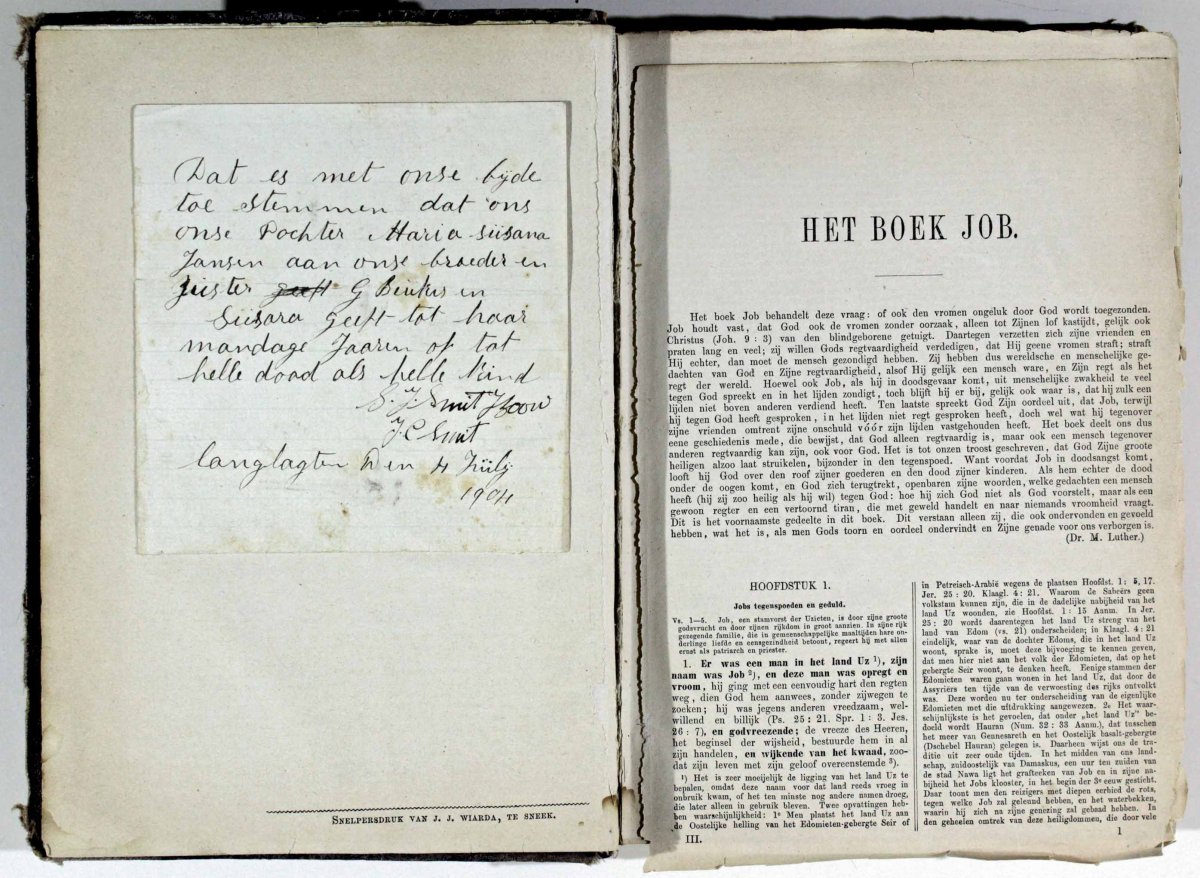 Dat es met onse byde
toe stemmen dat ons
onse Dochter Maria Susana
Jansen aan onse broeder en
suster G Beukes en
Susara geeft tot haar
mandage Jaaren of tot
helle dood als helle kind
J Smit
J C Smit
Langlagten Den 4 July
1904
SNELPERSDRUK VAN J. J. WIARDA, TE SNEEK.
HET BOEK JOB.
Het boek Job behandelt deze vraag: of ook den vromen ongeluk door God wordt toegezonden.
Job houdt vast, dat God ook de vromen zonder oorzaak, alleen tot Zijnen lof kastijdt, gelijk ook
Christus (Joh. 9 : 3) van den blindgeborene getuigt. Daartegen verzetten zich zijne vrienden en
praten lang en veel; zij willen Gods regtvaardigheid verdedigen, dat Hij geene vromen straft; straft
Hij echter, dan moet de mensch gezondigd hebben. Zij hebben dus wereldsche en menschelijke ge-
dachten van God en Zijne regtvaardigheid, alsof Hij gelijk een mensch ware, en Zijn regt als het
regt der wereld. Hoewel ook Job, als hij in doodsgevaar komt, uit menschelijke zwakheid te veel
tegen God spreekt en in het lijden zondigt, toch blijft hij er bij, gelijk ook waar is, dat hij zulk een
lijden niet boven anderen verdiend heeft. Ten laatste spreekt God Zijn oordeel uit, dat Job, terwijl
hij tegen God heeft gesproken, in het lijden niet regt gesproken heeft, doch wel wat hij tegenover
zijne vrienden omtrent zijne onschuld vóór zijn lijden vastgehouden heeft. Het boek deelt ons dus
eene geschiedenis mede, die bewijst, dat God alleen regtvaardig is, maar ook een mensch tegenover
anderen regtvaardig kan zijn, ook voor God. Het is tot onzen troost geschreven, dat God Zijne groote
heiligen alzoo laat struikelen, bijzonder in den tegenspoed. Want voordat Job in doodsangst komt,
looft hij God over den roof zijner goederen en den dood zijner kinderen. Als hem echter de dood
onder de oogen komt, en God zich terugtrekt, openbaren zijne woorden, welke gedachten een mensch
heeft (hij zij zoo heilig als hij wil) tegen God: hoe hij zich God niet als God voorstelt, maar als een
gewoon regter en een vertoornd tiran, die met geweld handelt en naar niemands vroomheid vraagt.
Dit is het voornaamste gedeelte in dit boek. Dit verstaan alleen zij, die ook ondervonden en gevoeld
hebben, wat het is, als men Gods toorn en oordeel ondervindt en Zijne genade voor ons verborgen is.
(Dr. M. Luther.)
HOOFDSTUK 1.
Jobs tegenspoeden en geduld.
Vs. 1—5. Job, een stamvorst der Uzieten, is door zijne groote
godsvrucht en door zijnen rijkdom in groot aanzien. In zijne rijk
gezegende familie, die in gemeenschappelijke maaltijden hare on-
derlinge liefde en eensgezindheid betoont, regeert hij met allen
ernst als patriarch en priester.
1. Er was een man in het land Uz ¹), zijn
naam was Job ²), en deze man was opregt en
vroom, hij ging met een eenvoudig hart den regten
weg, dien God hem aanwees, zonder zijwegen te
zoeken; hij was jegens anderen vreedzaam, wel-
willend en billijk (Ps. 25 : 21. Spr. 1 : 3. Jes.
26 : 7), en godvreezende; de vreeze des Heeren,
het beginsel der wijsheid, bestuurde hem in al
zijn handelen, en wijkende van het kwaad, zoo-
dat zijn leven met zijn geloof overeenstemde ³).
¹) Het is zeer moeijelijk de ligging van het land Uz te
bepalen, omdat deze naam voor dat land reeds vroeg in
onbruik kwam, of het ten minste nog andere namen droeg,
die later alleen in gebruik bleven. Twee opvattingen heb-
ben waarschijnlijkheid: 1e Men plaatst het land Uz aan
de Oostelijke helling van het Edomieten-gebergte Seir of
III.
in Petreisch-Arabië wegens de plaatsen Hoofdst. 1: 5, 17.
Jer. 25 : 20. Klaagl. 4 : 21. Waarom de Sabeërs geen
volkstam kunnen zijn, die in de dadelijke nabijheid van het
land Uz woonden, zie Hoofdst. 1 : 15 Aanm. In Jer.
25 : 20 wordt daarentegen het land Uz streng van het
land van Edom (vs. 21) onderscheiden; in Klaagl. 4 : 21
eindelijk, waar van de dochter Edoms, die in het land Uz
woont, sprake is, moet deze bijvoeging te kennen geven,
dat men hier niet aan het volk der Edomieten, dat op het
gebergte Seir woont, te denken heeft. Eenige stammen der
Edomieten waren gaan wonen in het land Uz, dat door de
Assyriërs ten tijde van de verwoesting des rijks ontvolkt
was. Deze worden nu ter onderscheiding van de eigenlijke
Edomieten met die uitdrukking aangewezen. 2e Het waar-
schijnlijkste is het gevoelen, dat onder „het land Uz” be-
doeld wordt Hauran (Num. 32 : 33 Aanm.), dat tusschen
het meer van Gennesareth en het Oostelijk basalt-gebergte
(Dschebel Hauran) gelegen is. Daarheen wijst ons de tra-
ditie uit zeer oude tijden. In het midden van ons land-
schap, zuidoostelijk van Damaskus, een uur ten zuiden van
de stad Nawa ligt het grafteeken van Job en in zijne na-
bijheid het Jobs klooster, in het begin der 3e eeuw gesticht.
Daar toont men den reizigers met diepen eerbied de rots,
tegen welke Job zal geleund hebben, en het waterbekken,
waarin hij zich na zijne genezing zal gebaad hebben. In
den geheelen omtrek van deze heiligdommen, die door vele
1